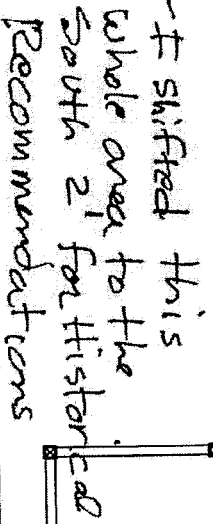 - I shifted this
whole area to the
South 2' for Historical
Recommendations